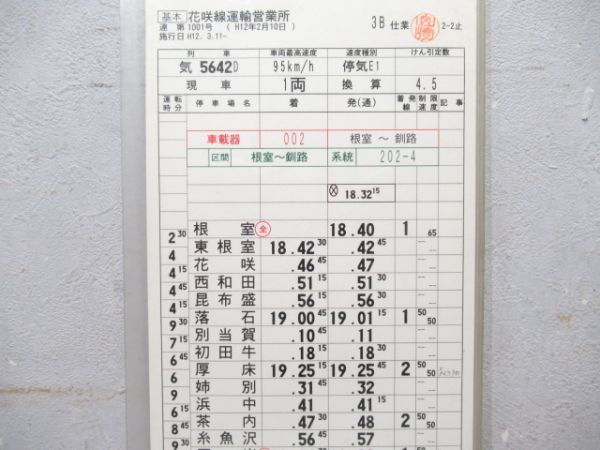 基本 花咲線運輸営業所 3B 仕業 2-2止
達 第 1001号 ( H12年2月10日 )
施行日 H12. 3.11-
列車 車両最高速度 速度種別 けん引定数
気 5642D 95km/h 停気E1
現車 1両 換算 4.5
運転時分 停車場名 着 発(通) 着発線 制限速度 記事
車載器 002 根室 ～ 釧路
区間 根室～釧路 系統 202-4
18.32 15
根室 全 18.40 1 65
2 30
東根室 18.42 30 .42 45
4
花咲 .46 45 .47
4 15
西和田 .51 15 .51 30
4 45
昆布盛 .56 15 .56 30
4 15
落石 19.00 45 19.01 15 1 50 50
9 30
別当賀 .10 45 .11
7 15
初田牛 .18 15 .18 30
6 45
厚床 19.25 15 19.25 45 2 50 50
6
姉別 .31 45 .32
9
浜中 .41 .41 15
6 15
茶内 .47 30 .48 2 50 50
8 45
糸魚沢 .56 45 .57
9 30